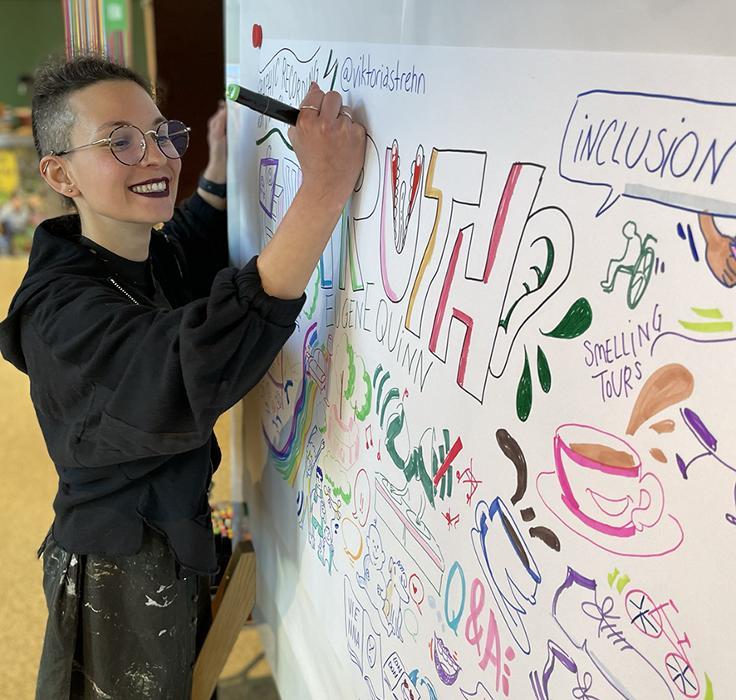 GRAPHIC RECORDING
@viktoriastrehn
TRUTH?
EUGENE QUINN
INCLUSION
SMELLING
TOURS
Q&Ai
WE